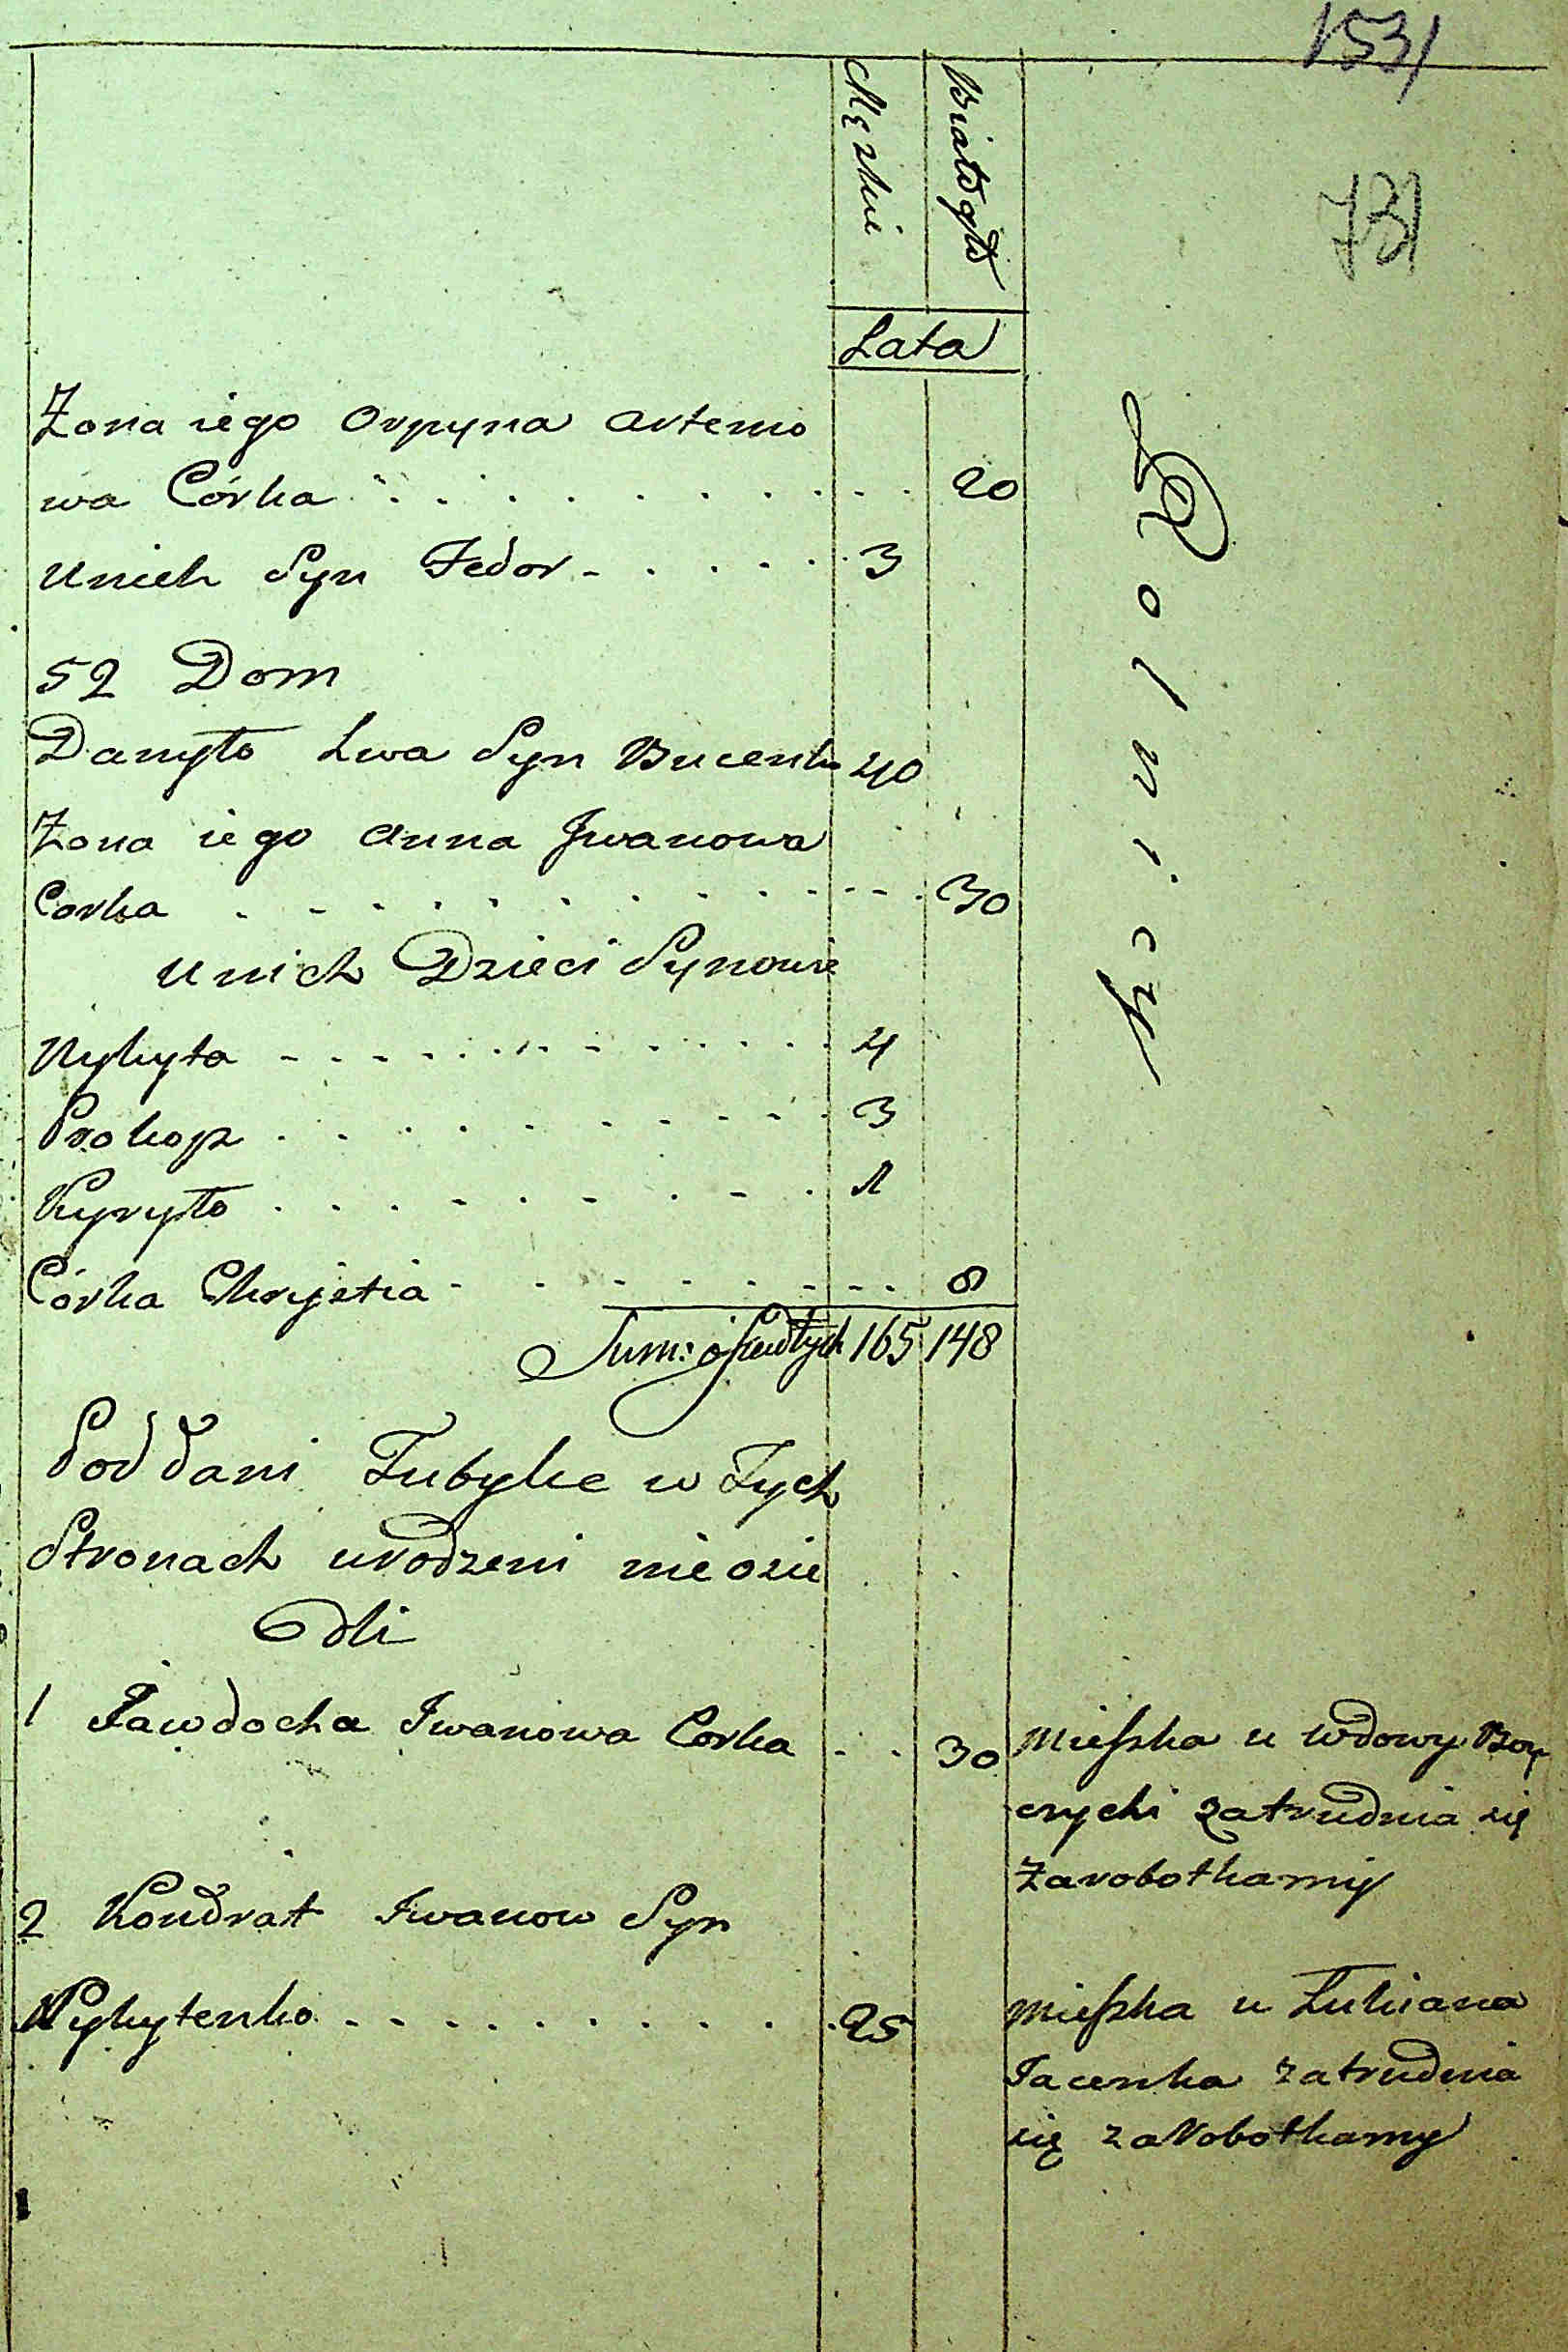 1531
731
Męzkie
Białogło
Lata
Żona iego Orpyna Artemo
wa Córka 20
Unich Syn Fedor 3
52 Dom
Danyło Lwa Syn Bucenko 40
Żona iego Anna Jwanowa
Corka 30
Unich Dzieci Synowie
Nykyta 4
Prokop 3
Kyryło 1
Córka Chrystia 8
Sum: osiadłych 165 148
Poddani Tubylce w Tych
Stronach urodzeni nie osie
dli
1 Jawdocha Iwanowa Corka 30
mieszka u wdowy
czychi zatrudnia się
zarobotkamy
2 Kondrat Iwanow Syn
Nykytenko 25
mieszka u Łukiana
Jacenka zatrudnia
się zarobotkamy
Rolnicy